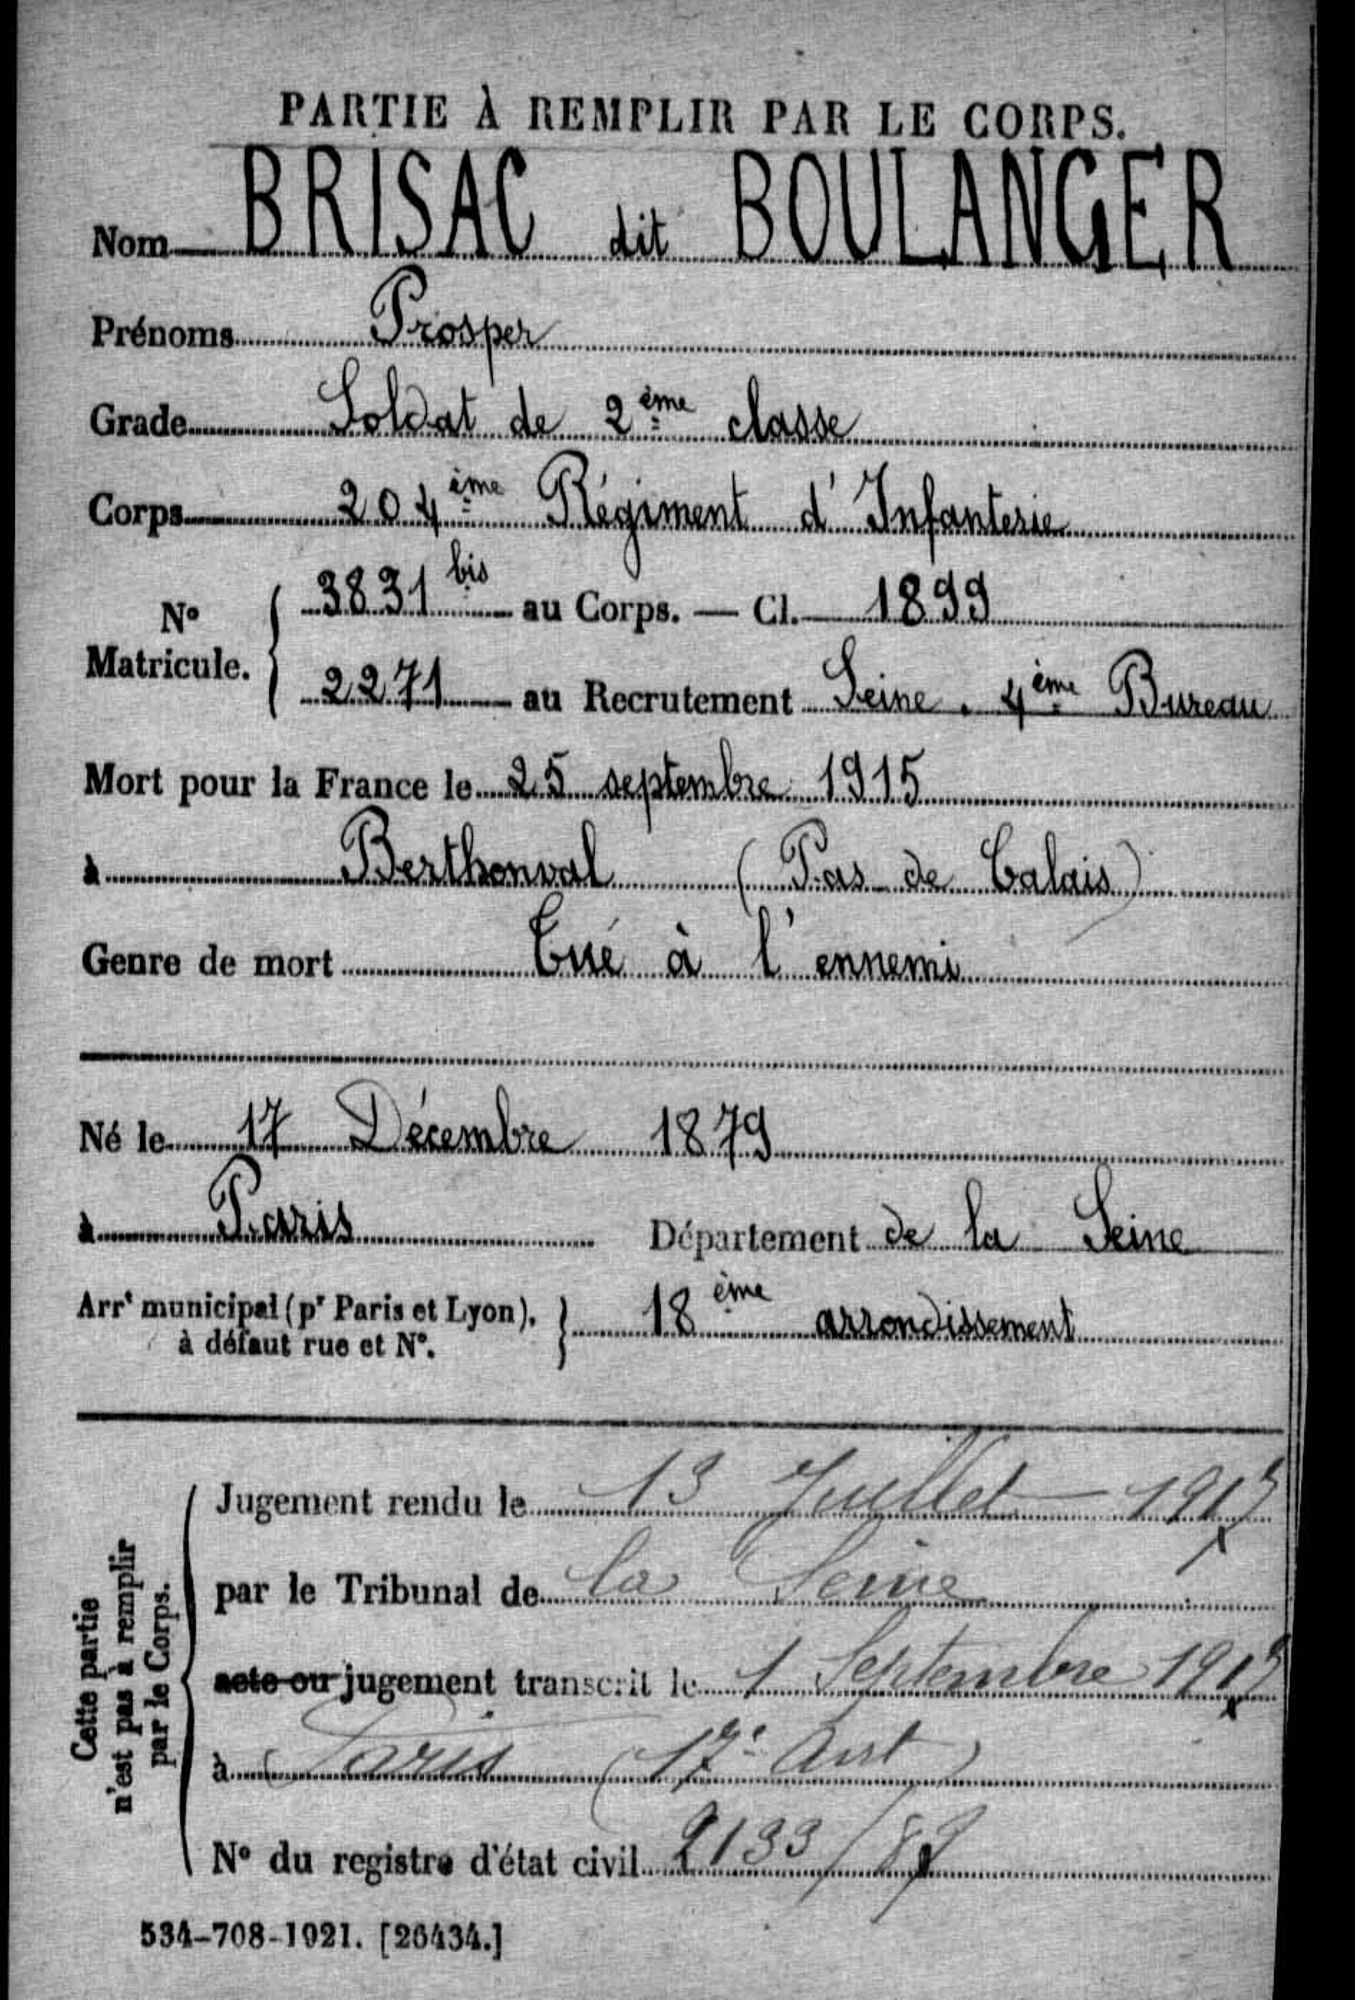 PARTIE À REMPLIR PAR LE CORPS.
Nom BRISAC dit BOULANGER
Prénoms Prosper
Grade Soldat de 2ème classe
Corps 204ème Régiment d'Infanterie
No Matricule. { 3831 bis au Corps. — Cl. 1899
2271 au Recrutement Seine. 4ème Bureau
Mort pour la France le 25 septembre 1915
à Berthonval (Pas de Calais)
Genre de mort Tué à l'ennemi
Né le 17 Décembre 1879
à Paris Département de la Seine
Arrt municipal (pr Paris et Lyon), à défaut rue et No. } 18ème arrondissement
Cette partie n'est pas à remplir par le Corps.
Jugement rendu le 13 Juillet
par le Tribunal de la Seine
acte ou jugement transcrit le 1 Septembre
à Paris (17e Arrt)
No du registre d'état civil
534-708-1921. [26434.]